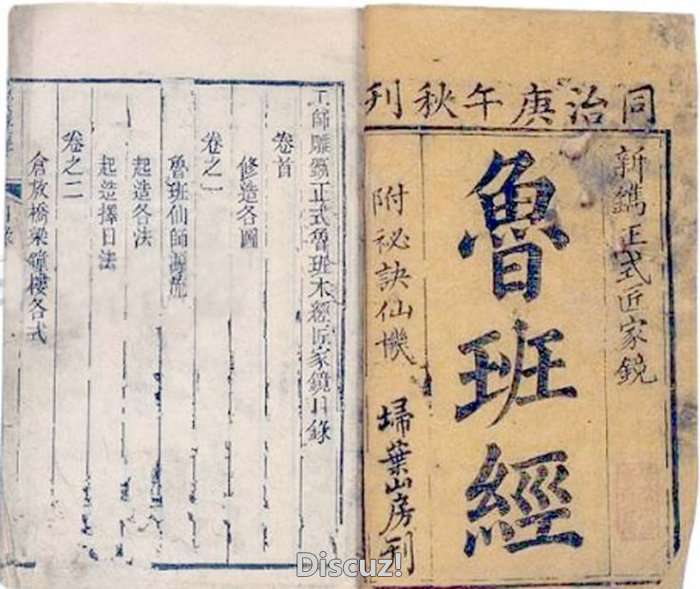 同治庚午秋刊
新鐫正式匠家鏡
魯班經
附祕訣仙機
埽葉山房刊
工師雕斲正式魯班木經匠家鏡目錄
卷首
修造各圖
卷之一
魯班仙師源流
起造各法
起造擇日法
卷之二
倉敖橋梁鐘樓各式
目錄
Discuz!